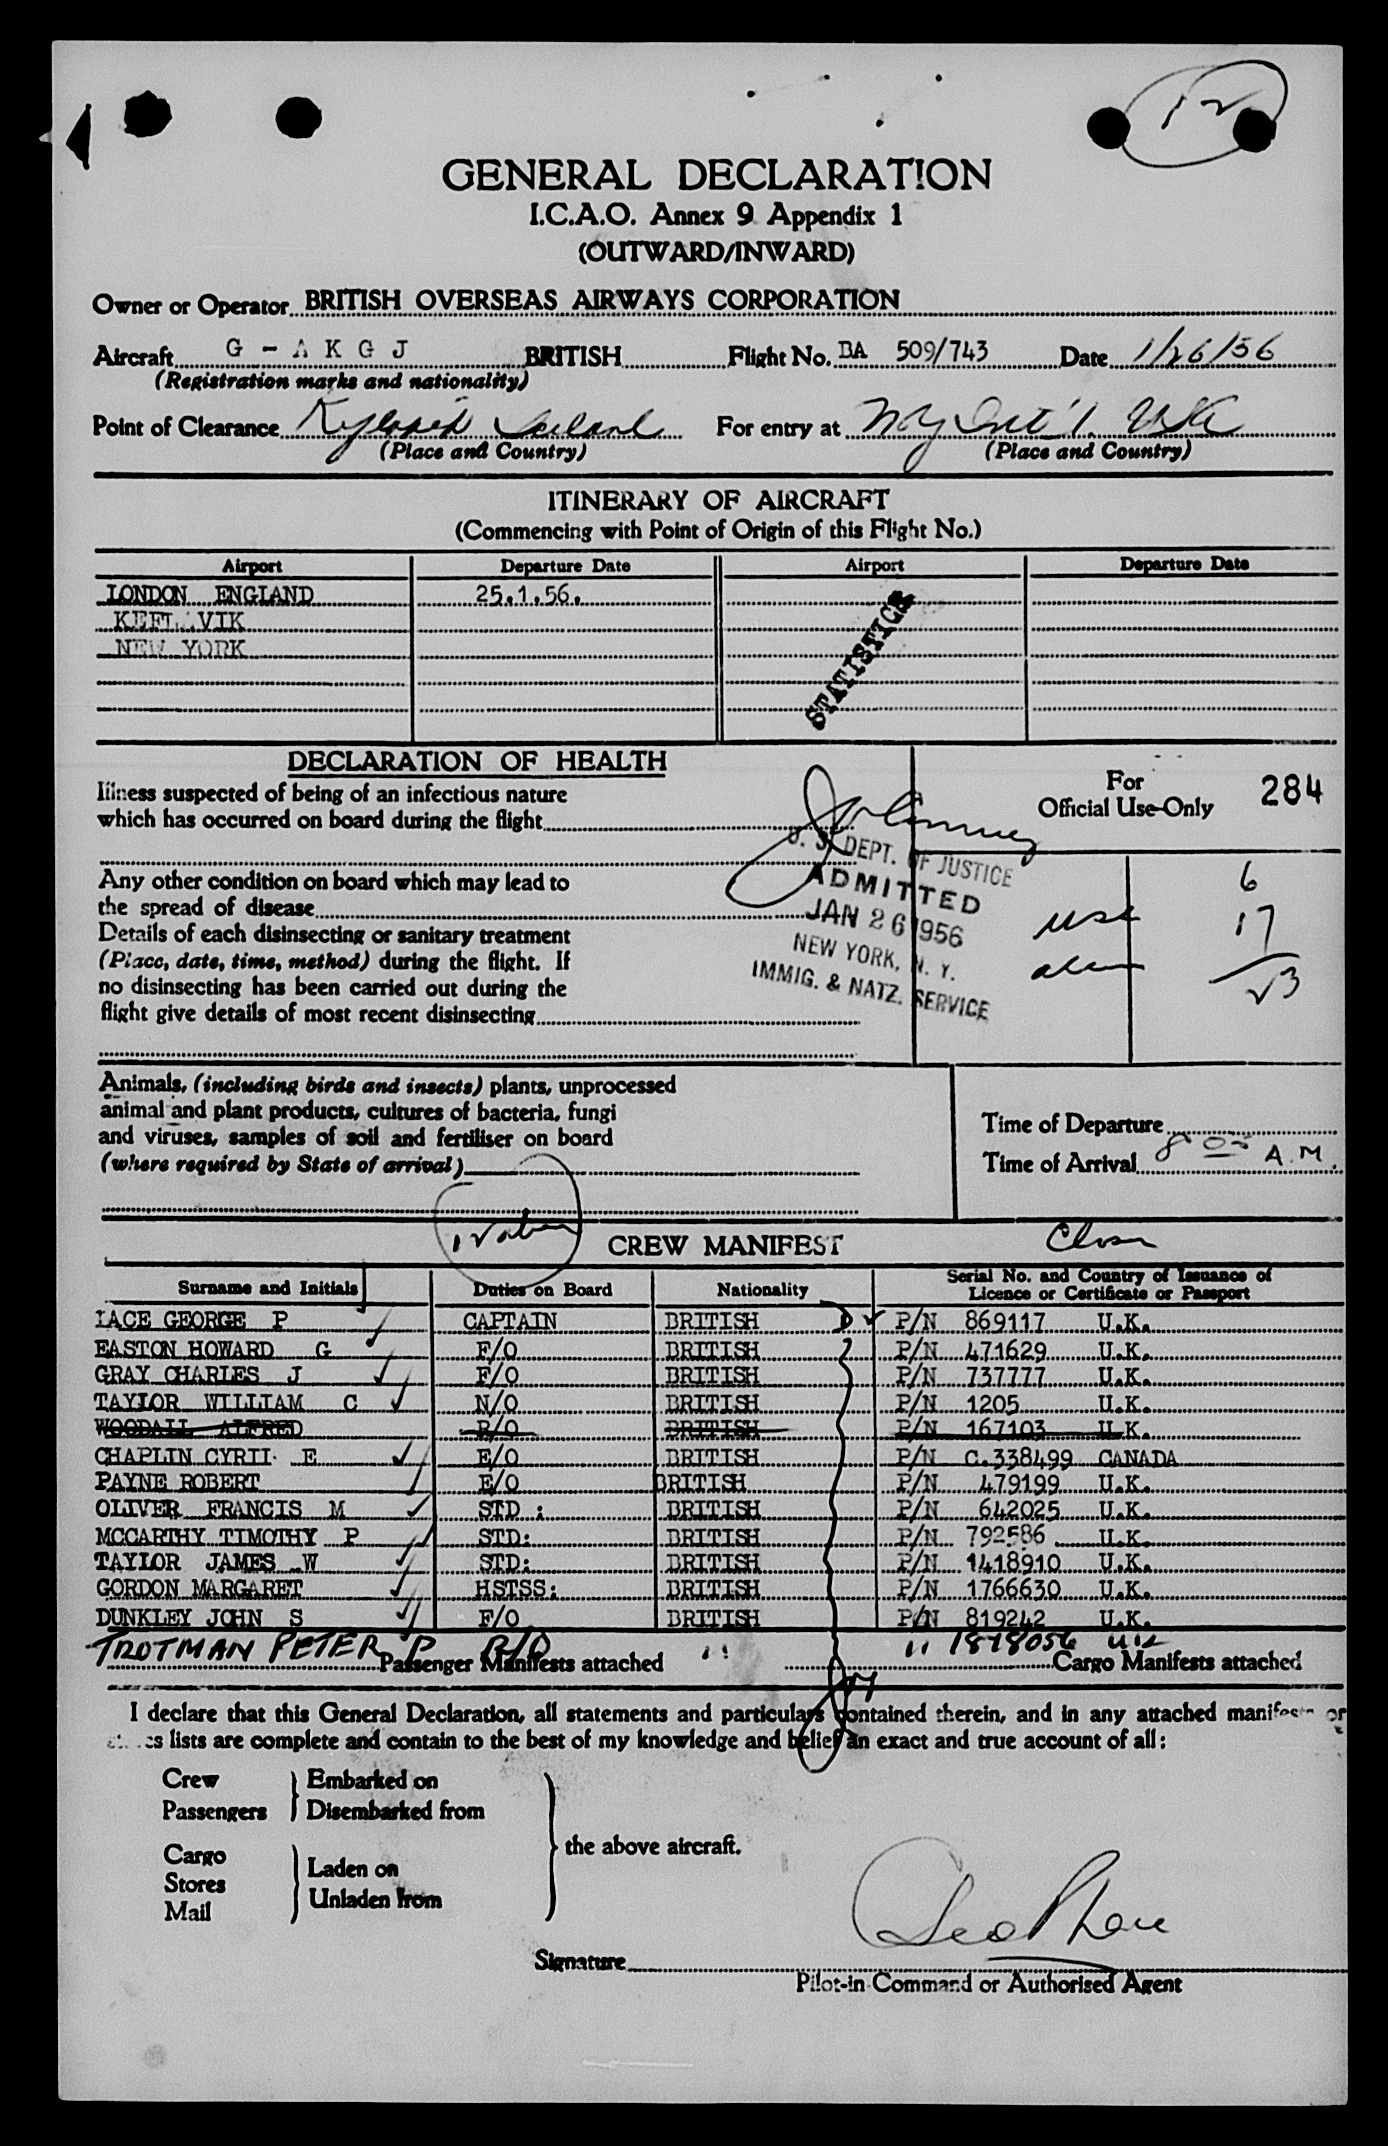 12
GENERAL DECLARATION
I.C.A.O. Annex 9 Appendix 1
(OUTWARD/INWARD)
Owner or Operator BRITISH OVERSEAS AIRWAYS CORPORATION
Aircraft G - A K G J BRITISH Flight No. BA 509/743 Date 1/26/56
(Registration marks and nationality)
Point of Clearance For entry at NY Int'l. USA
(Place and Country) (Place and Country)
ITINERARY OF AIRCRAFT
(Commencing with Point of Origin of this Flight No.)
Airport Departure Date Airport Departure Date
LONDON ENGLAND 25.1.56.
KEFLAVIK
NEW YORK
STATISTICS
DECLARATION OF HEALTH
Illness suspected of being of an infectious nature
which has occurred on board during the flight
For
Official Use Only 284
Any other condition on board which may lead to
the spread of disease
Details of each disinsecting or sanitary treatment
(Place, date, time, method) during the flight. If
no disinsecting has been carried out during the
flight give details of most recent disinsecting
U. S. DEPT. OF JUSTICE
ADMITTED
JAN 26 1956
NEW YORK, N. Y.
IMMIG. & NATZ. SERVICE
6
usc 17
alien 23
Animals, (including birds and insects) plants, unprocessed
animal and plant products, cultures of bacteria, fungi
and viruses, samples of soil and fertiliser on board
(where required by State of arrival)
Time of Departure
Time of Arrival 8 05 A.M.
CREW MANIFEST
Surname and Initials Duties on Board Nationality Serial No. and Country of Issuance of Licence or Certificate or Passport
LACE GEORGE P CAPTAIN BRITISH D P/N 869117 U.K.
EASTON HOWARD G F/O BRITISH P/N 471629 U.K.
GRAY CHARLES J F/O BRITISH P/N 737777 U.K.
TAYLOR WILLIAM C N/O BRITISH P/N 1205 U.K.
WOODALL ALFRED R/O BRITISH P/N 167103 U.K.
CHAPLIN CYRIL E E/O BRITISH P/N C.338499 CANADA
PAYNE ROBERT E/O BRITISH P/N 479199 U.K.
OLIVER FRANCIS M STD : BRITISH P/N 642025 U.K.
MCCARTHY TIMOTHY P STD: BRITISH P/N 792586 U.K.
TAYLOR JAMES W STD: BRITISH P/N 1418910 U.K.
GORDON MARGARET HSTSS: BRITISH P/N 1766630 U.K.
DUNKLEY JOHN S F/O BRITISH P/N 819242 U.K.
TROTMAN PETER P R/O " " 1878056 U.K.
Passenger Manifests attached Cargo Manifests attached
I declare that this General Declaration, all statements and particulars contained therein, and in any attached manifests or
lists are complete and contain to the best of my knowledge and belief an exact and true account of all:
Crew Embarked on
Passengers Disembarked from
the above aircraft.
Cargo
Stores
Mail
Laden on
Unladen from
Signature
Pilot-in-Command or Authorised Agent